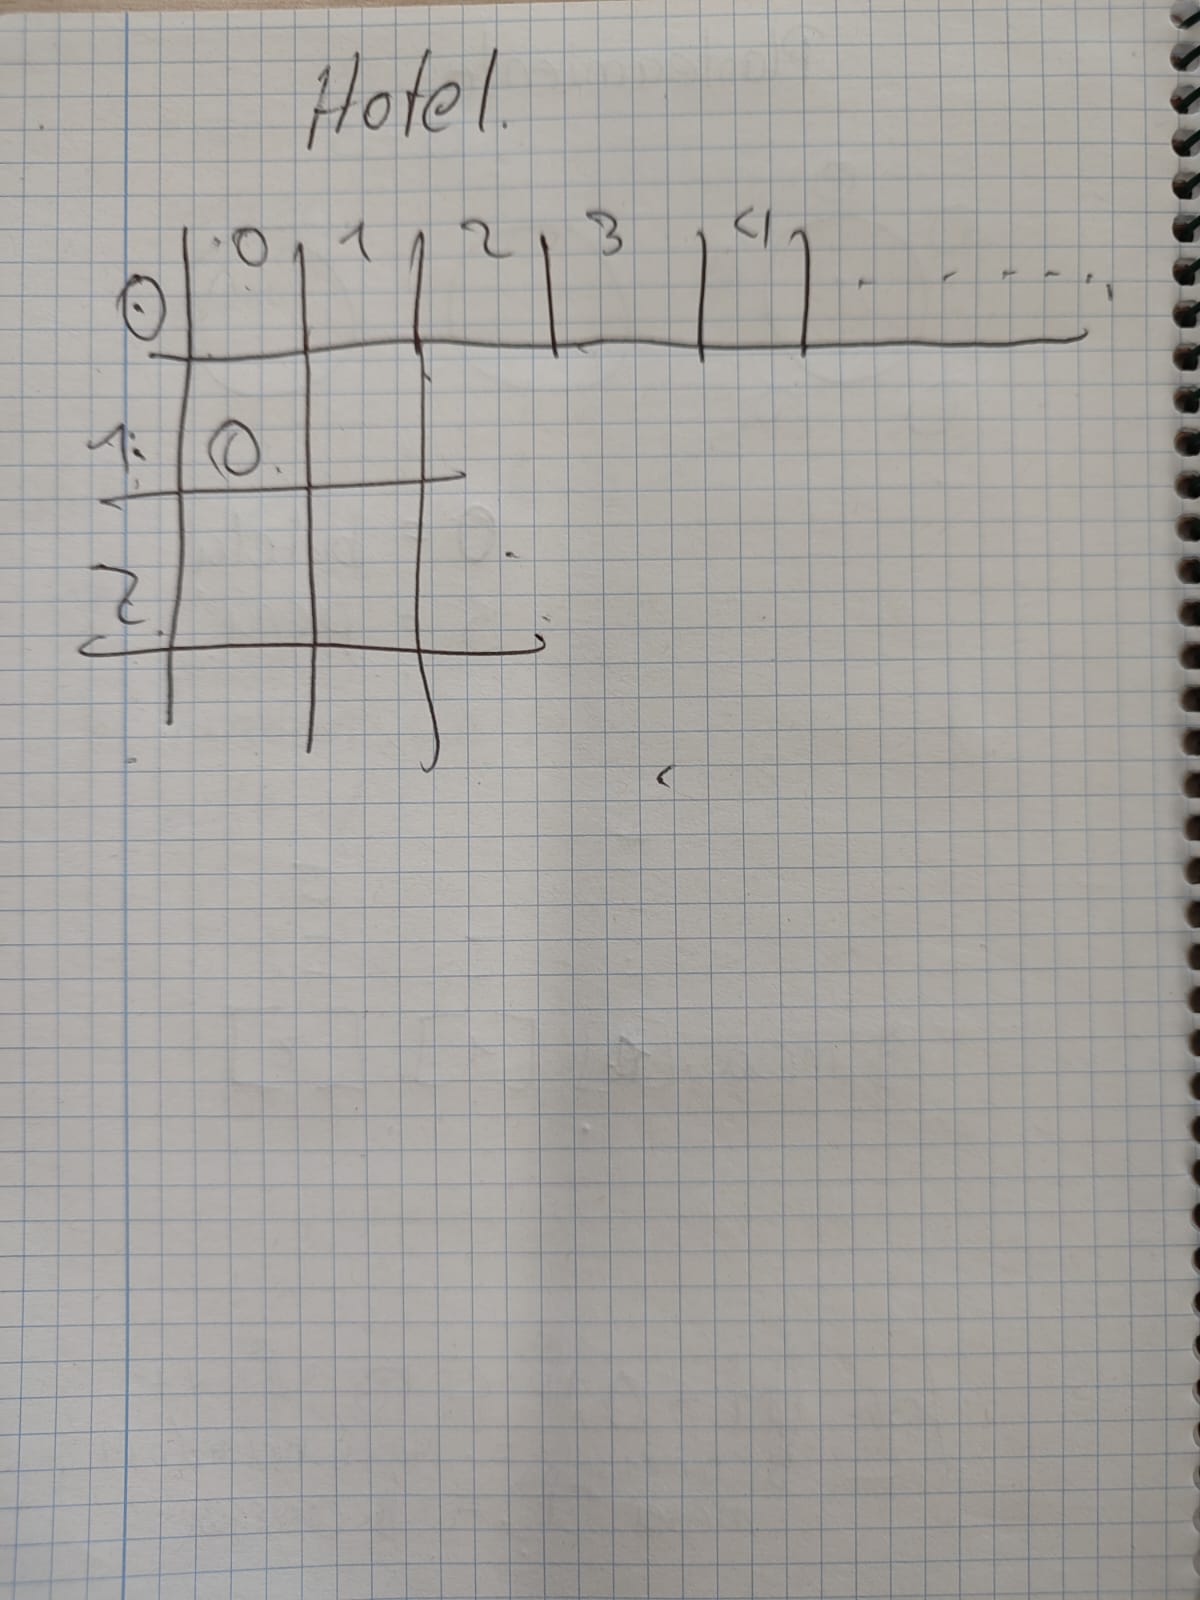 Hotel.
0 0 1 2 3 4 . - - - - .
1: 0.
2.